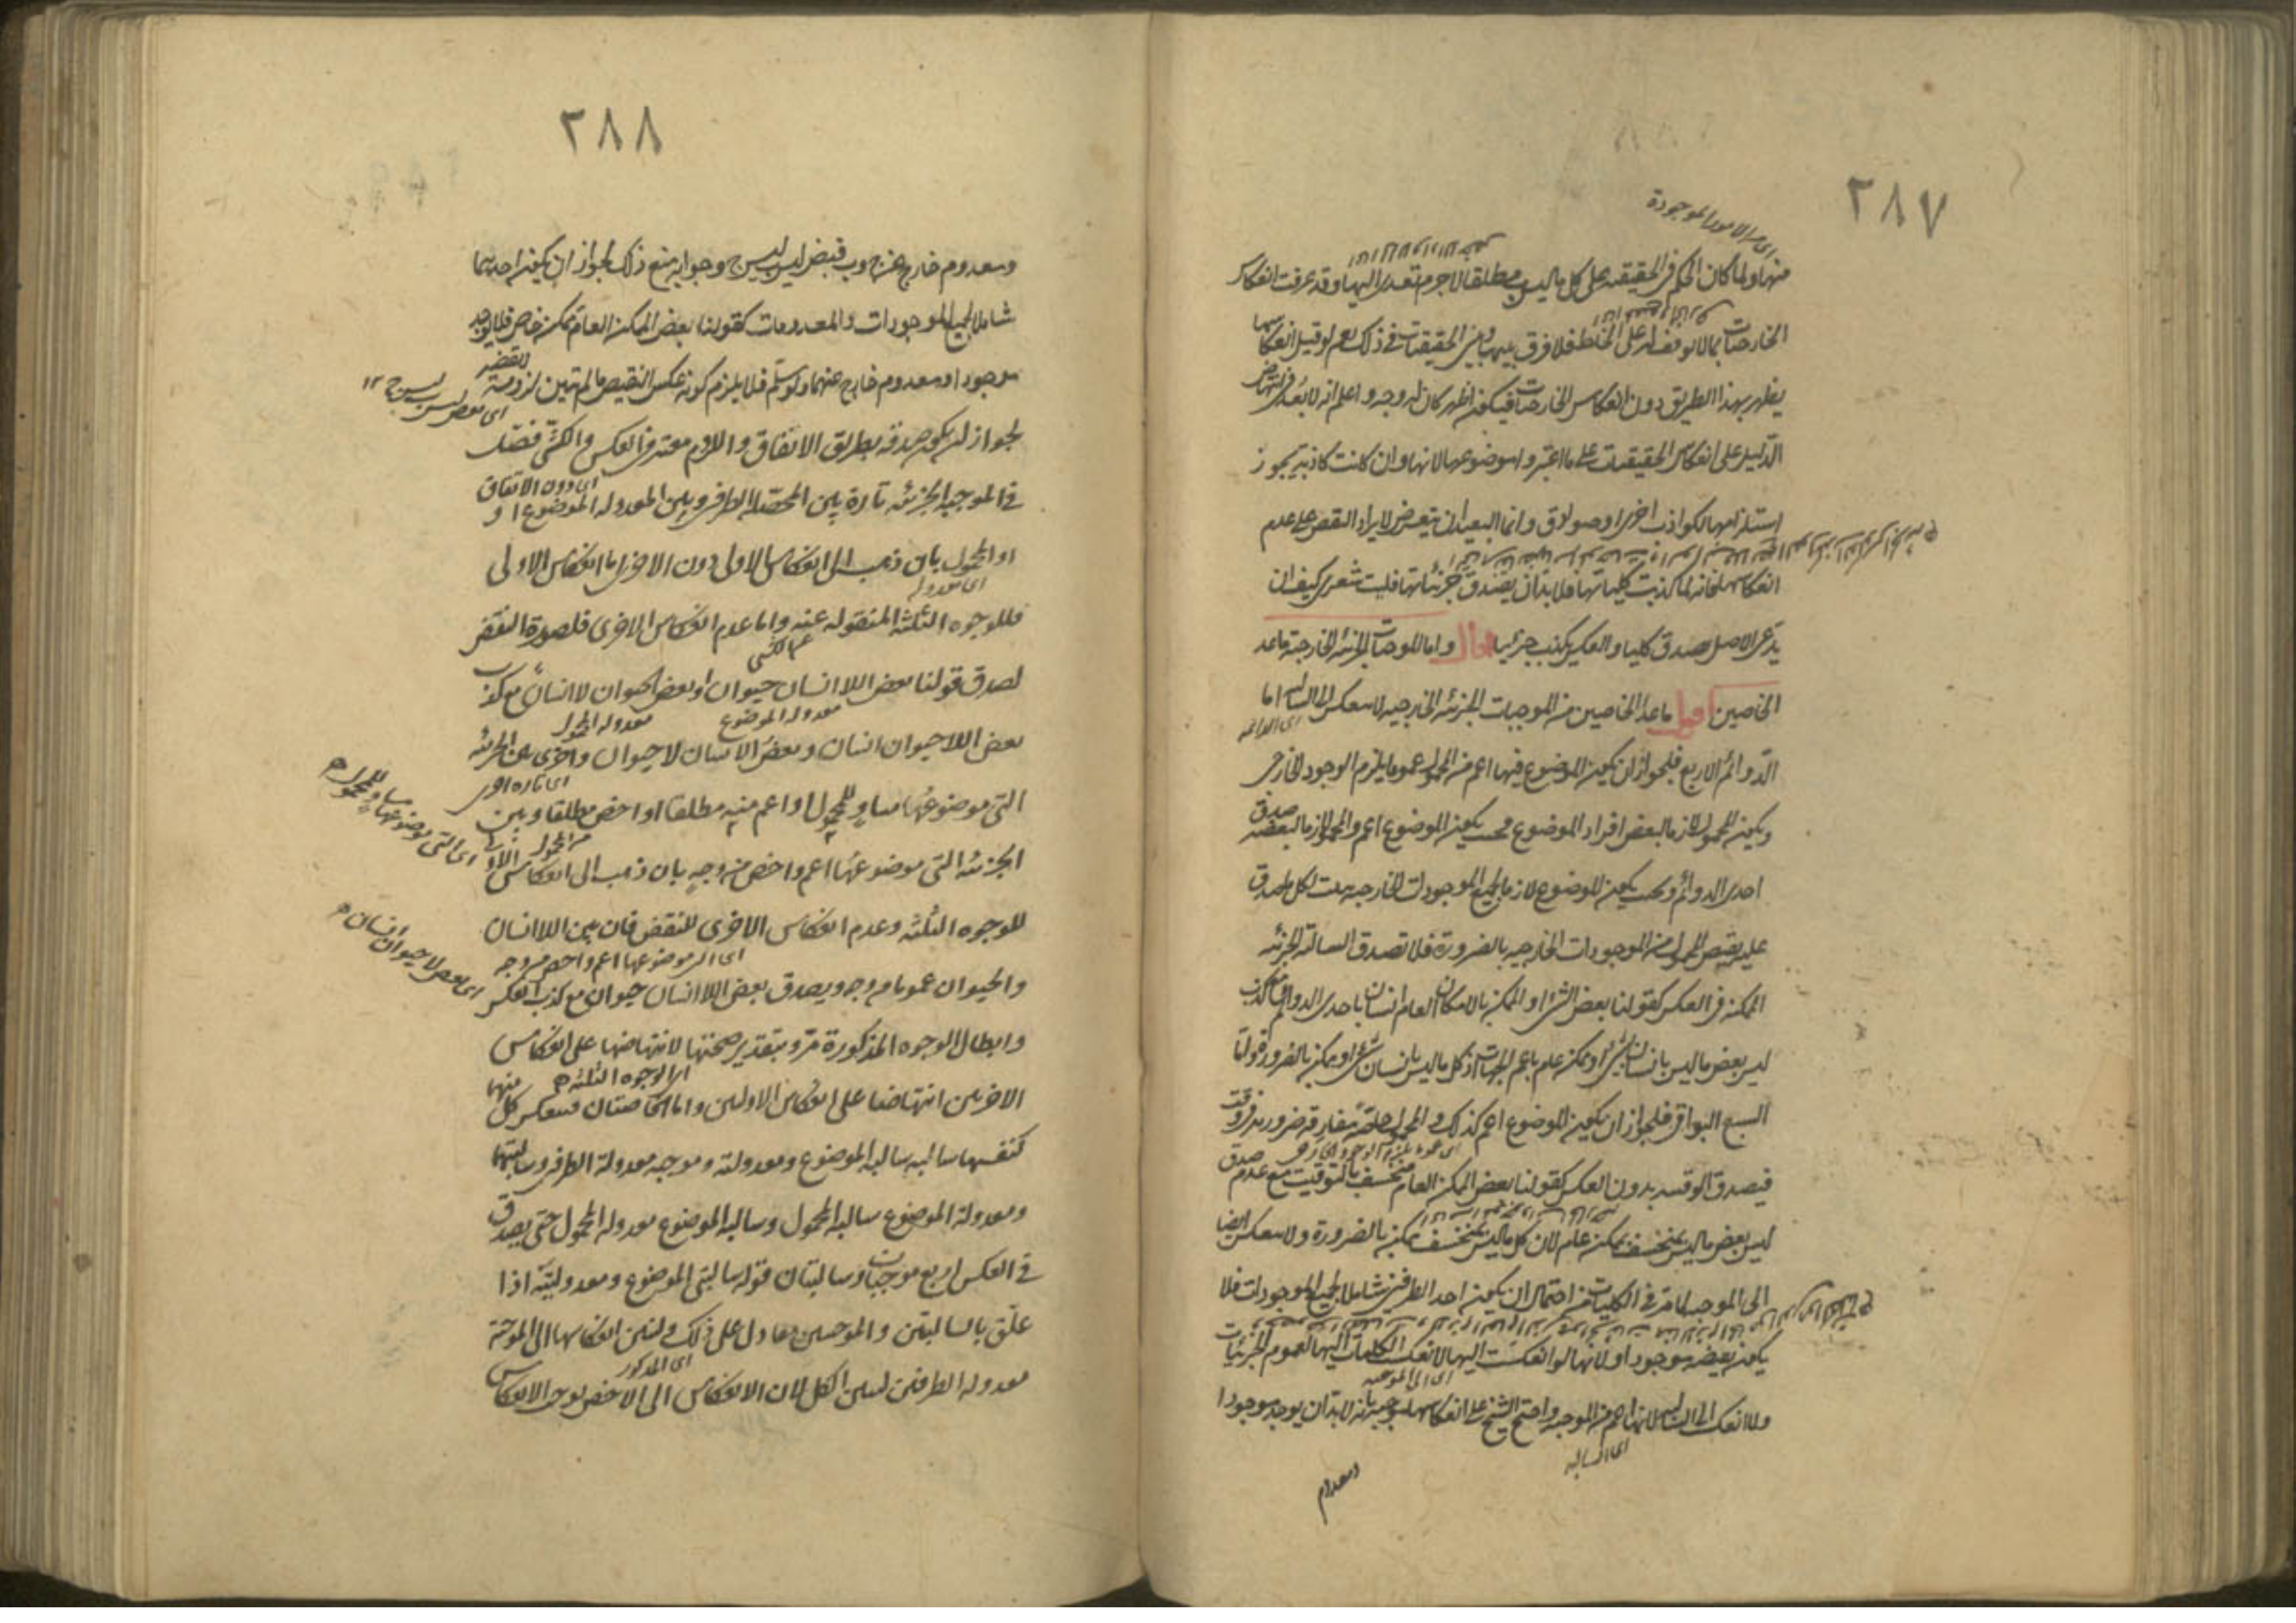 ٢٨٧
اى من الامور الموجودة
منها ولما كان الحكم فى الحقيقيه على كل ما ليس ب مطلقا لاجرم تعدى اليها وقد عرفت انعكاس
الخارجيات بما لا توقف له على الخلط فلا فرق بينها وبين الحقيقيات فى ذلك نعم لو قيل انعكاسها
يظهر بهذا الطريق دون انعكاس الخارجيات فيكون اظهر كان له وجه واعلم انه لا بعد فى انتهاض
الدليل على انعكاس الحقيقيات على ما اعتبروا موضوعها لانها وان كانت كاذبة يجوز
استلزامها لكواذب اخرى او صوادق وانما البعيد ان يتعرض لايراد النقض على عدم
انعكاسها فانه لما كذبت كلياتها فلا بد ان يصدق جزئياتها فليت شعرى كيف ان
يدعى الاصل صدق كليا والعكس يكذب جزئيا قال واما الموجبات الجزئيه الخارجية ما عدا
الخاصتين اقول ما عدا الخاصتين من الموجبات الجزئيه الخارجيه لا ينعكس الى السالبه اما
اى الدائمه
الدوائم الاربع فلجواز ان يكون الموضوع فيها اعم من المحمول عموما يلزم الوجود الخارجى
ويكون المحمول لازما لبعض افراد الموضوع فحيث يكون الموضوع اعم والمحمول لازما لبعضه صدق
احدى الدوائم وحيث يكون الموضوع لازما لجميع الموجودات الخارجيه يثبت لكل ما صدق
عليه نقيض المحمول من الموجودات الخارجيه بالضرورة فلا تصدق السالبة الجزئيه
الممكنه فى العكس كقولنا بعض الشىء او الممكن بالامكان العام انسان باحدى الدوائم مع كذب
ليس بعض ما ليس بانسان بشىء او ممكن عام باعم الجهات اذ كل ما ليس بانسان شىء او ممكن بالضرورة واما
السبع البواقى فلجواز ان يكون الموضوع اعم كذلك والمحمول خاصة مفارقة ضرورية فى وقت
فيصدق الوقتيه بدون العكس كقولنا بعض الممكن العام منخسف بالتوقيت مع عدم صدق
ليس بعض ما ليس بمنخسف بممكن عام لان كل ما ليس بمنخسف ممكن بالضرورة ولا ينعكس ايضا
الى الموجبه لما مر فى الكليات من احتمال ان يكون احد الطرفين شاملا لجميع الموجودات فلا
يكون نقيضه موجودا ولانها لو انعكست اليها لانعكست الكليات اليها لعموم الجزئيات
اى الى الموجبه
ولانعكست الى السالبه لانها اعم من الموجبه واحتج الشيخ على انعكاسها موجبة بانه لا بد ان يوجد موجودا
اى السالبه
ومعدوم
٢٨٨
ومعدوم خارج عن ج وب فبعض ليس ب ليس ج وجوابه منع ذلك لجواز ان يكون احدهما
شاملا لجميع الموجودات والمعدومات كقولنا بعض الممكن العام ممكن خاص فلا يوجد
موجود او معدوم خارج عنهما ولو سلم فلا يلزم كونه عكس النقيض ما لم يتبين لزومه للقضية
اى بعض ليس ب ليس ج ١٢
لجواز ان يكون صدقه بطريق الاتفاق واللزوم معتبر فى العكس والكشى فصل
اى دون الاتفاق
فى الموجبه الجزئيه تارة بين المحصلة الطرفين وبين المعدوله الموضوع او
او المحمول بان ذهب الى انعكاس الاولى دون الاخرى اما انعكاس الاولى
اى معدوله
فللوجوه الثلثه المنقوله عنه واما عدم انعكاس الاخرى فلصورة النقض
عن الكشى
لصدق قولنا بعض اللاانسان حيوان او بعض الحيوان لا انسان مع كذب
معدوله الموضوع معدوله المحمول
بعض اللاحيوان انسان وبعض الانسان لا حيوان واخرى بين الجزئيه
اى تاره اخرى
التى موضوعها مساو للمحمول او اعم منه مطلقا او اخص مطلقا وبين
من المحمول
اى التى موضوعها مساو للمحمول
الجزئيه التى موضوعها اعم واخص من وجه بان ذهب الى انعكاس الاولى
للوجوه الثلثه وعدم انعكاس الاخرى للنقض فان بين اللاانسان
اى التى موضوعها اعم واخص من وجه
والحيوان عموما من وجه ويصدق بعض اللاانسان حيوان مع كذب العكس
اى بعض لا حيوان انسان
وابطال الوجوه المذكورة مر وبتقدير صحتها لانتهاضها على انعكاس
اى الوجوه الثلثه
الاخريين انتهاضها على انعكاس الاوليين واما الخاصتان فينعكس كل منهما
كنفسها سالبه سالبة الموضوع ومعدولته وموجبه معدولة الطرفين وسالبتهما
ومعدولة الموضوع سالبه المحمول وسالبه الموضوع معدوله المحمول حتى يصدق
فى العكس اربع موجبات وسالبتان فقوله سالبتى الموضوع ومعدوليته اذا
علق بالسالبتين والموجبتين معا دل على ذلك وليتبين انعكاسها الى الموجبة
اى المذكور
معدوله الطرفين ليتبين الكل لان الانعكاس الى الاخص يوجب الانعكاس